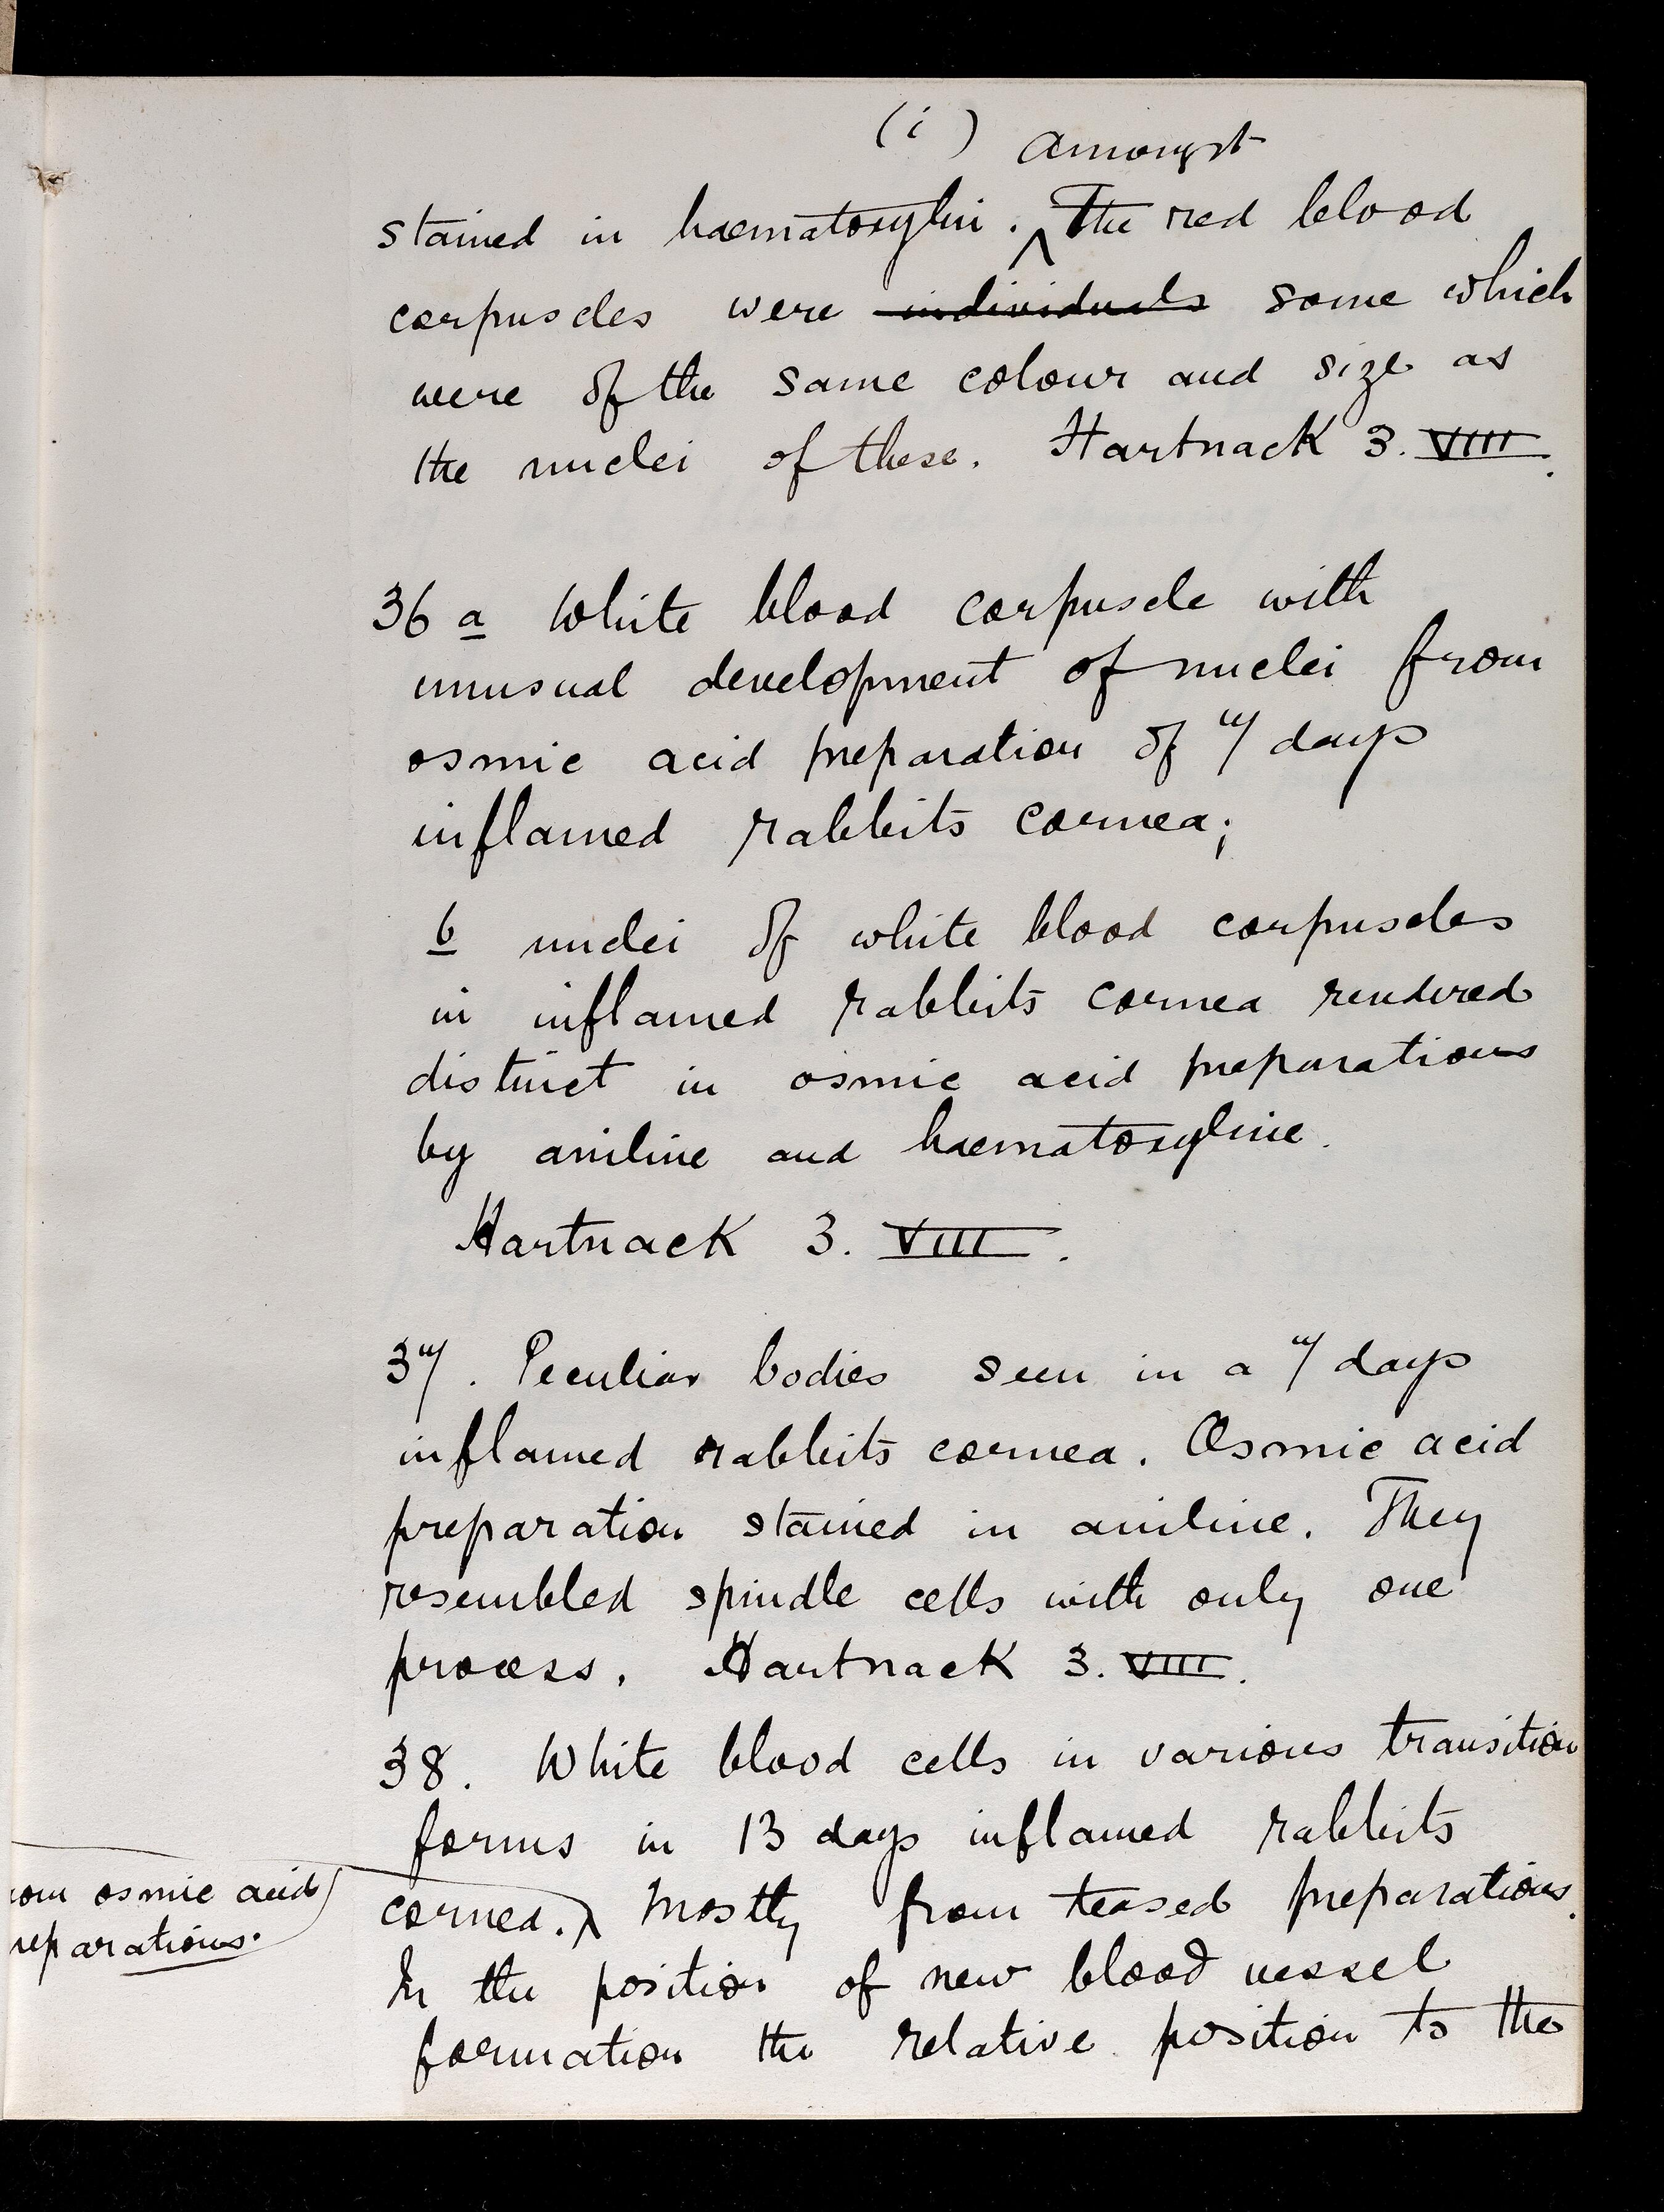 (i) Amongst
stained in haematoxylin. The red blood
corpuscles were individuals some which
were of the same colour and size as
the nuclei of these. Hartnack 3. VIII.
36 a White blood corpuscle with
unusual development of nuclei from
osmic acid preparation of 7 days
inflamed rabbits cornea;
b nuclei of white blood corpuscles
in inflamed rabbits cornea rendered
distinct in osmic acid preparations
by aniline and haematoxyline.
Hartnack 3. VIII.
37. Peculiar bodies seen in a 7 days
inflamed rabbits cornea. Osmic acid
preparation stained in aniline. They
resembled spindle cells with only one
process. Hartnack 3. VIII.
38. White blood cells in various transition
forms in 13 days inflamed rabbits
cornea. Mostly from teased preparations.
In the position of new blood vessel
formation the relative position to the
om osmic acid
reparations.